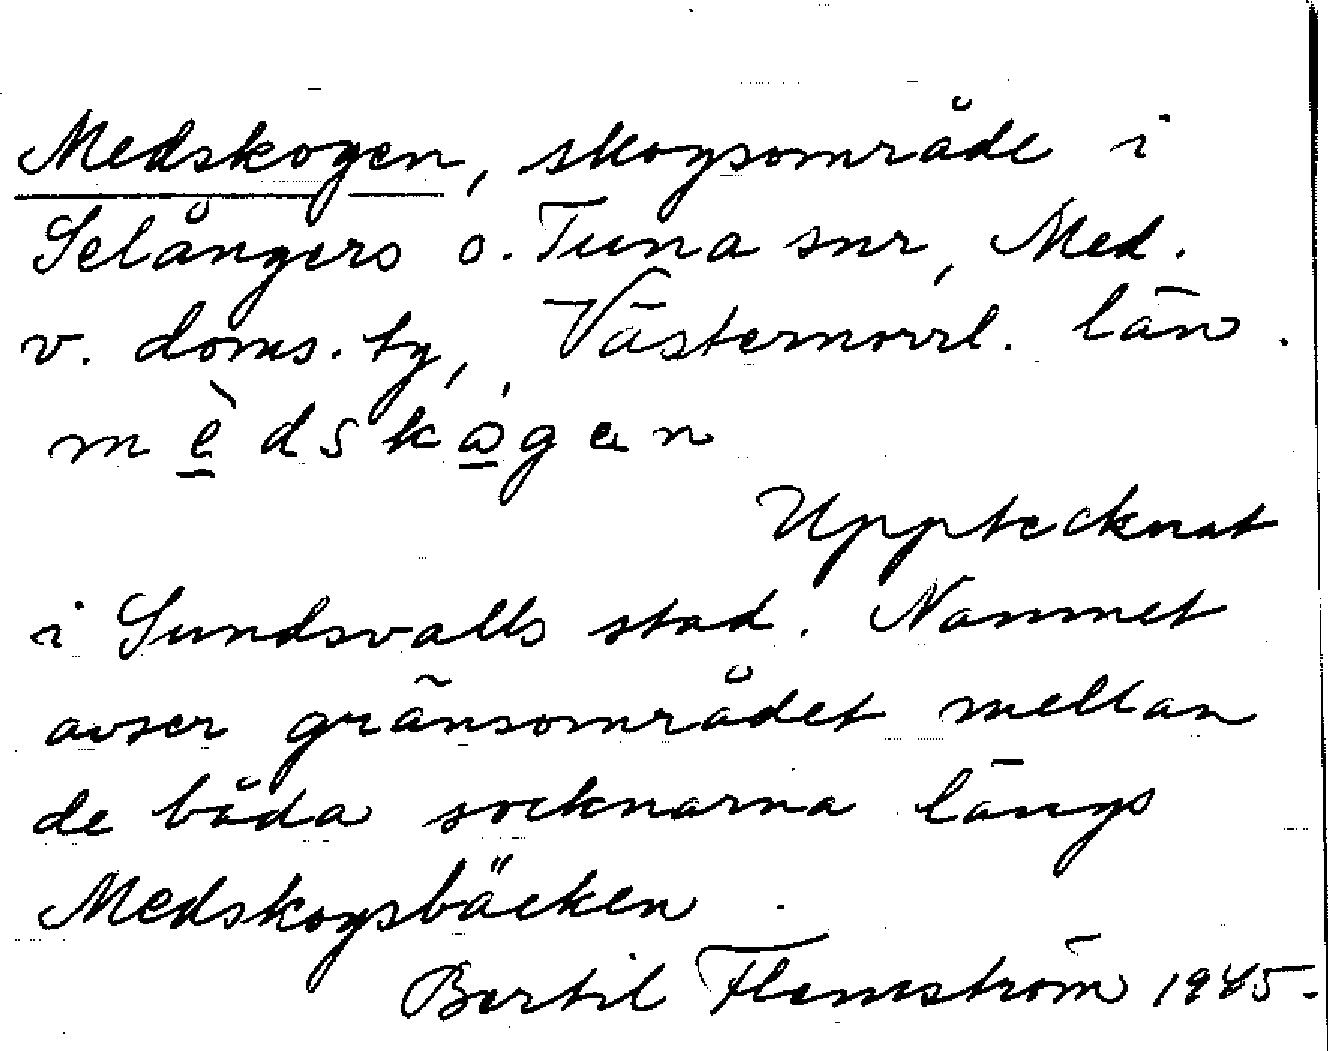 Medskogen, skogsområde i
Selångers o. Tuna snr, Med.
v. doms. tg, Västernorrl. län.
mèdskógen
Upptecknat
i Sundsvalls stad. Namnet
avser gränsområdet mellan
de båda socknarna längs
Medskogsbäcken.
Bertil Flemström 1945.